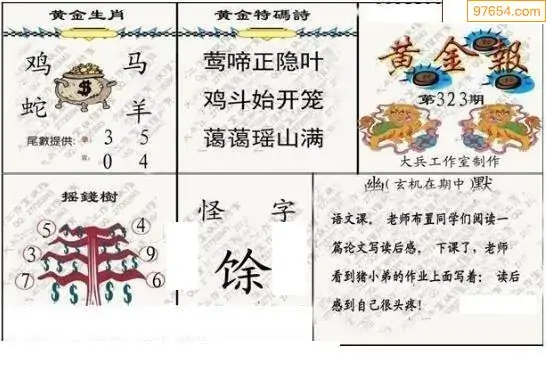 97654.com
黄金生肖
鸡
马
蛇
羊
尾數提供:
單
3
5
雙
0
4
黄金特碼詩
莺啼正隐叶
鸡斗始开笼
蔼蔼瑶山满
黄金報
第323期
大兵工作室制作
摇錢樹
5
4
3
9
7
6
怪字
馀
幽(玄机在期中)默
语文课, 老师布置同学们阅读一
篇论文写读后感, 下课了, 老师
看到猪小弟的作业上面写着: 读后
感到自己很头疼!